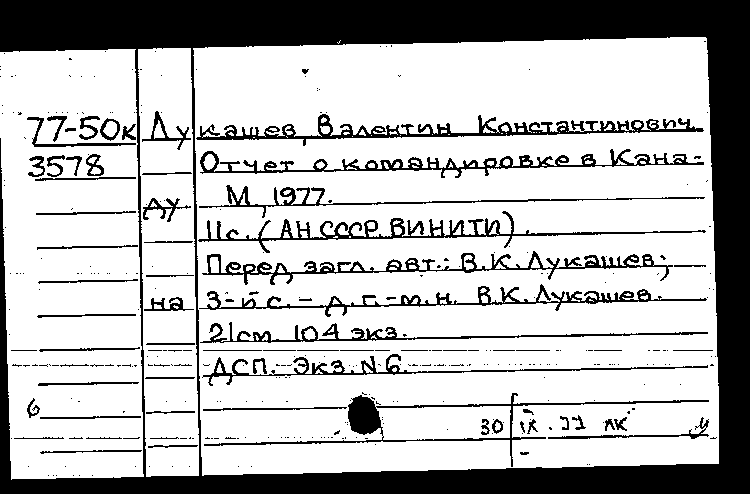 77-50к Лукашев, Валентин Константинович.
3578 Отчет о командировке в Кана-
ду М, 1977.
11с. (АН СССР. ВИНИТИ).
Перед загл. авт.: В.К.Лукашев;
на 3-й с. - д.г.-м.н. В.К.Лукашев.
21см 104 экз.
ДСП. Экз.N6.
6
30 IX.77 лк